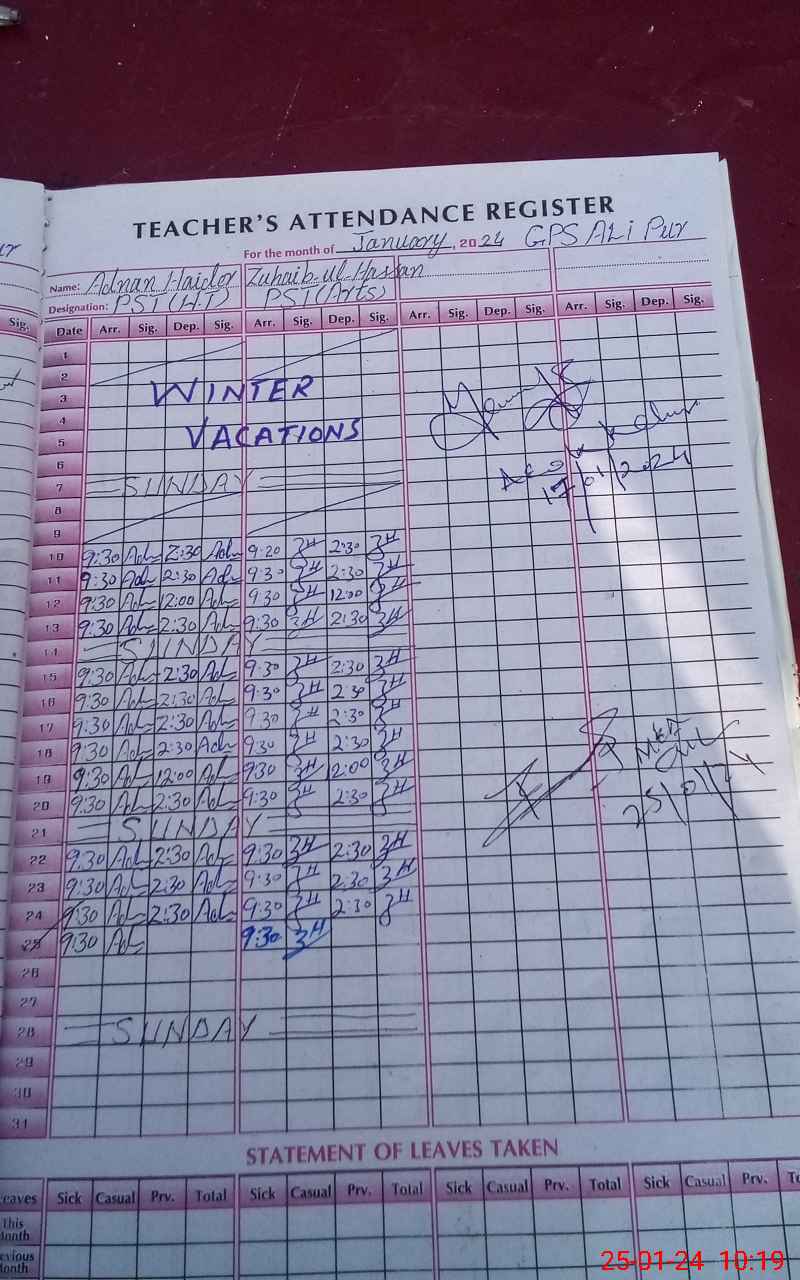 TEACHER'S ATTENDANCE REGISTER
For the month of January, 2024 GPS ALi PUR
Name: Adnan Haider Zuhaib-ul-Hassan
Designation: PST(H.T) PST(Arts)
Date Arr. Sig. Dep. Sig. Arr. Sig. Dep. Sig. Arr. Sig. Dep. Sig. Arr. Sig. Dep. Sig.
1
2
3 WINTER
4
5 VACATIONS
6
7 SUNDAY
17/01/2024
8
9
10 9:30 Ad 2:30 Ad 9:20 ZH 2:30 ZH
11 9:30 Ad 2:30 Ad 9:30 ZH 2:30 ZH
12 9:30 Ad 12:00 Ad 9:30 ZH 12:00 ZH
13 9:30 Ad 2:30 Ad 9:30 ZH 2:30 ZH
14 SUNDAY
15 9:30 Ad 2:30 Ad 9:30 ZH 2:30 ZH
16 9:30 Ad 2:30 Ad 9:30 ZH 2:30 ZH
17 9:30 Ad 2:30 Ad 9:30 ZH 2:30 ZH
18 9:30 Ad 2:30 Ad 9:30 ZH 2:30 ZH
19 9:30 Ad 12:00 Ad 9:30 ZH 12:00 ZH
20 9:30 Ad 2:30 Ad 9:30 ZH 2:30 ZH
25/01/24
21 SUNDAY
22 9:30 Ad 2:30 Ad 9:30 ZH 2:30 ZH
23 9:30 Ad 2:30 Ad 9:30 ZH 2:30 ZH
24 9:30 Ad 2:30 Ad 9:30 ZH 2:30 ZH
25 9:30 Ad 9:30 ZH
26
27
28 SUNDAY
29
30
31
STATEMENT OF LEAVES TAKEN
eaves Sick Casual Prv. Total Sick Casual Prv. Total Sick Casual Prv. Total Sick Casual Prv.
This
Month
evious
Month
25-01-24 10:19
Sig.